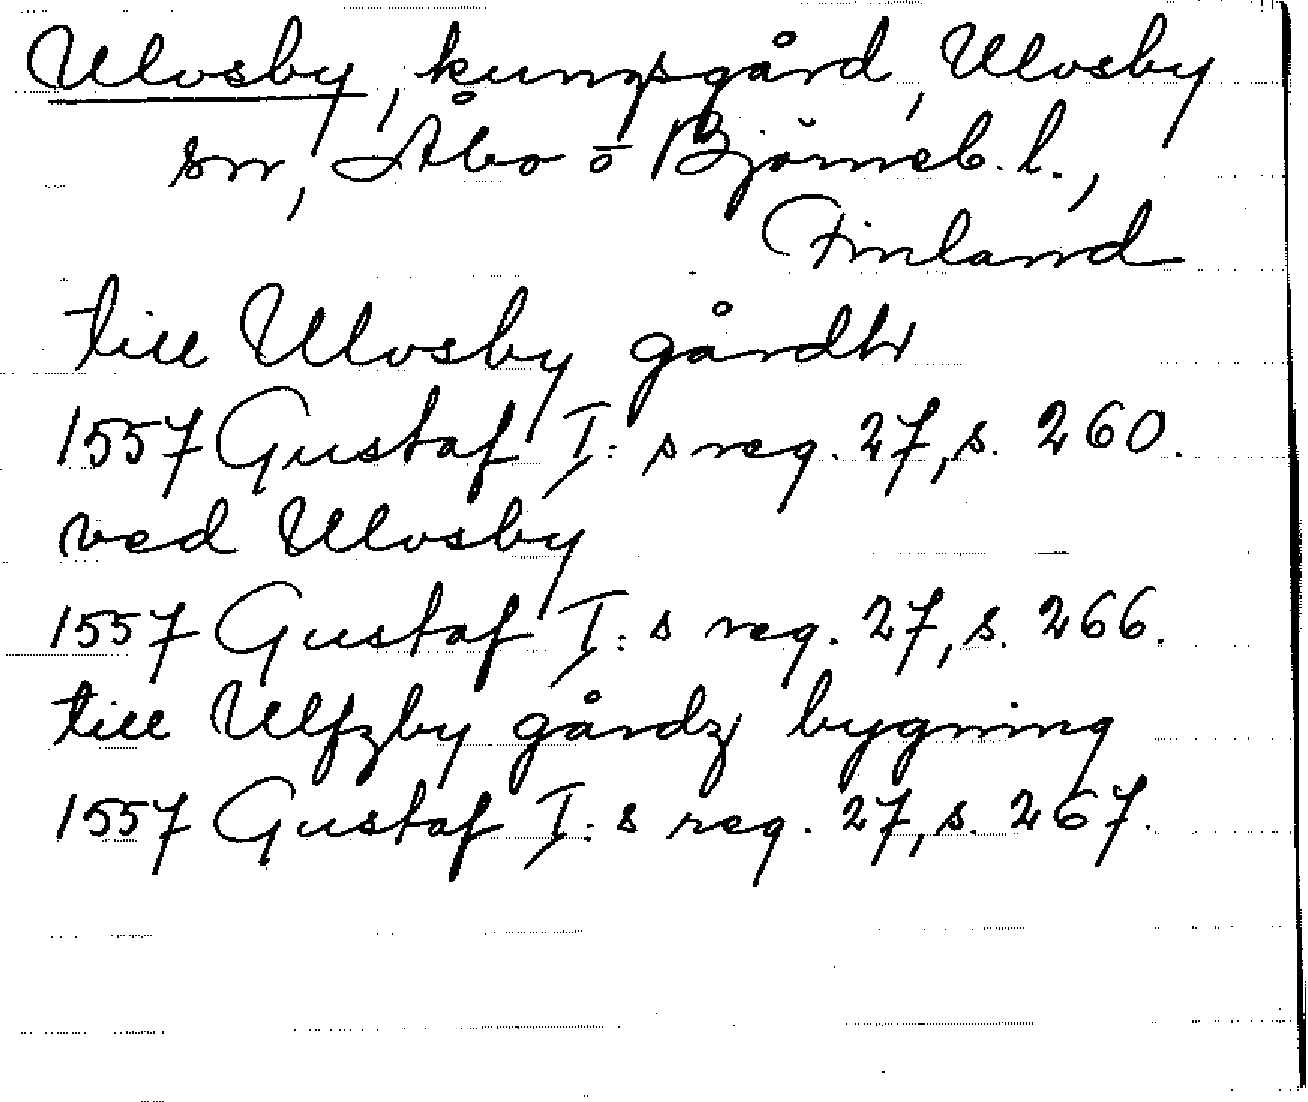 Ulvsby, kungsgård, Ulvsby
sn, Åbo o Björneb. l.,
Finland
till Ulvsby gårdh
1557 Gustaf I:s reg. 27, s. 260.
ved Ulvsby
1557 Gustaf I:s reg. 27, s. 266.
till Ulfzby gårdz bygning
1557 Gustaf I:s reg. 27, s. 267.